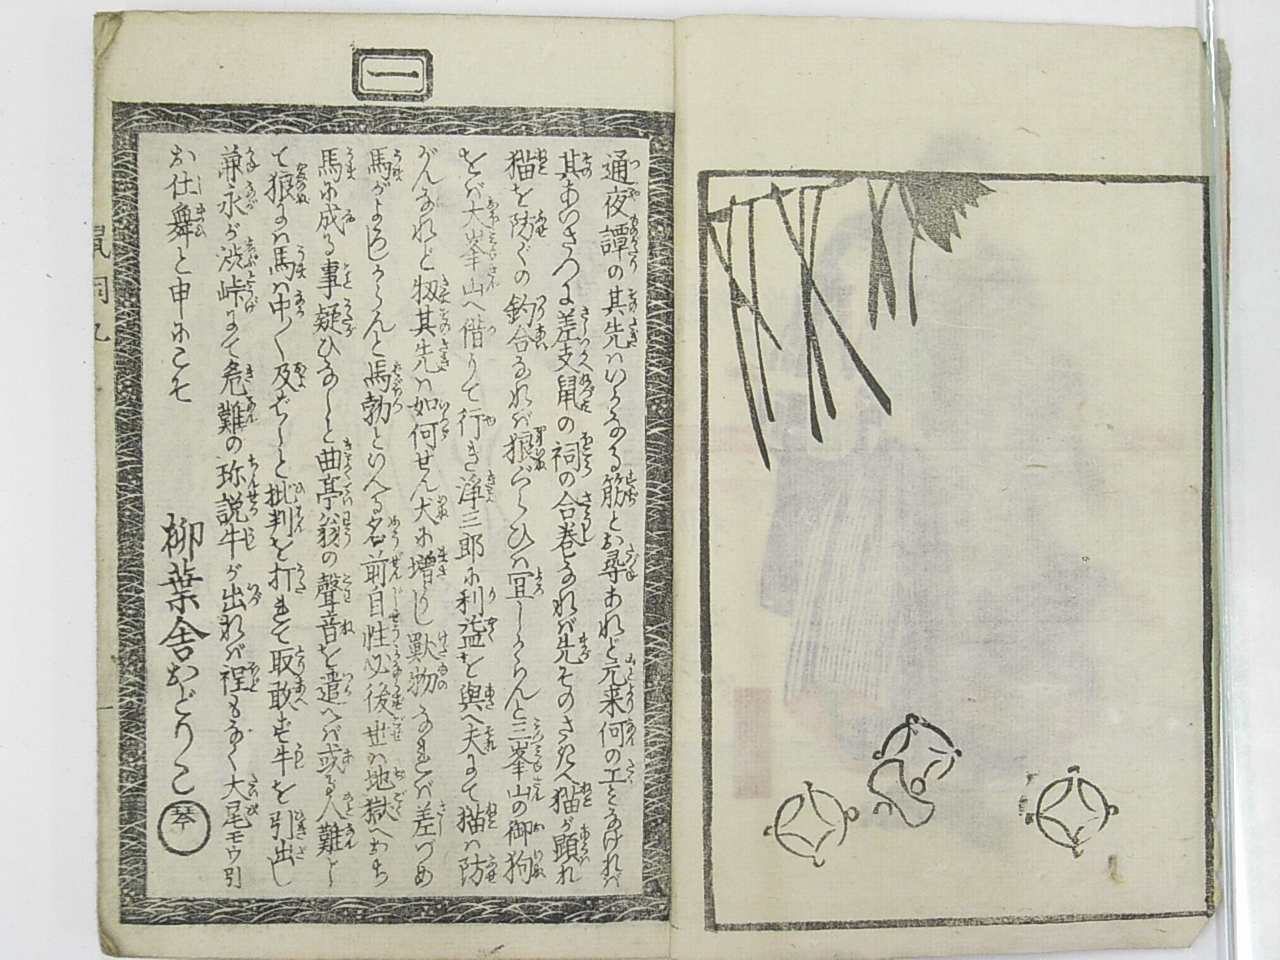 一
通夜譚の其先ハいかなる筋とお尋あれど元来何の工もなけれバ
其あいさつに差支鼠の祠の合巻なれバ先そのさきへ猫が顕れ
猫を防ぐの釣合なれバ狼ぐらひハ宜しからんと三峯山の御狗
をバ大峯山へ借りて行き浄三郎に利益を與へ夫にて猫ハ防
がんなれど扨其先ハ如何せん犬に増りし獣物なれバ差づめ
馬がよろしからんと馬勃といへる名前自性必後世ハ地獄へおち
馬に成る事疑ひなしと曲亭翁の聲音を遣へバ或る人難し
て狼よりハ馬ハ中〱及ぶまじと批判を打れて取敢ず牛を引出し
兼永が渋峠にて危難の珎説牛が出れバ程もなく大尾モウ引
お仕舞と申にこそ
柳葉舎おどりこ
琴
鼠祠九
一